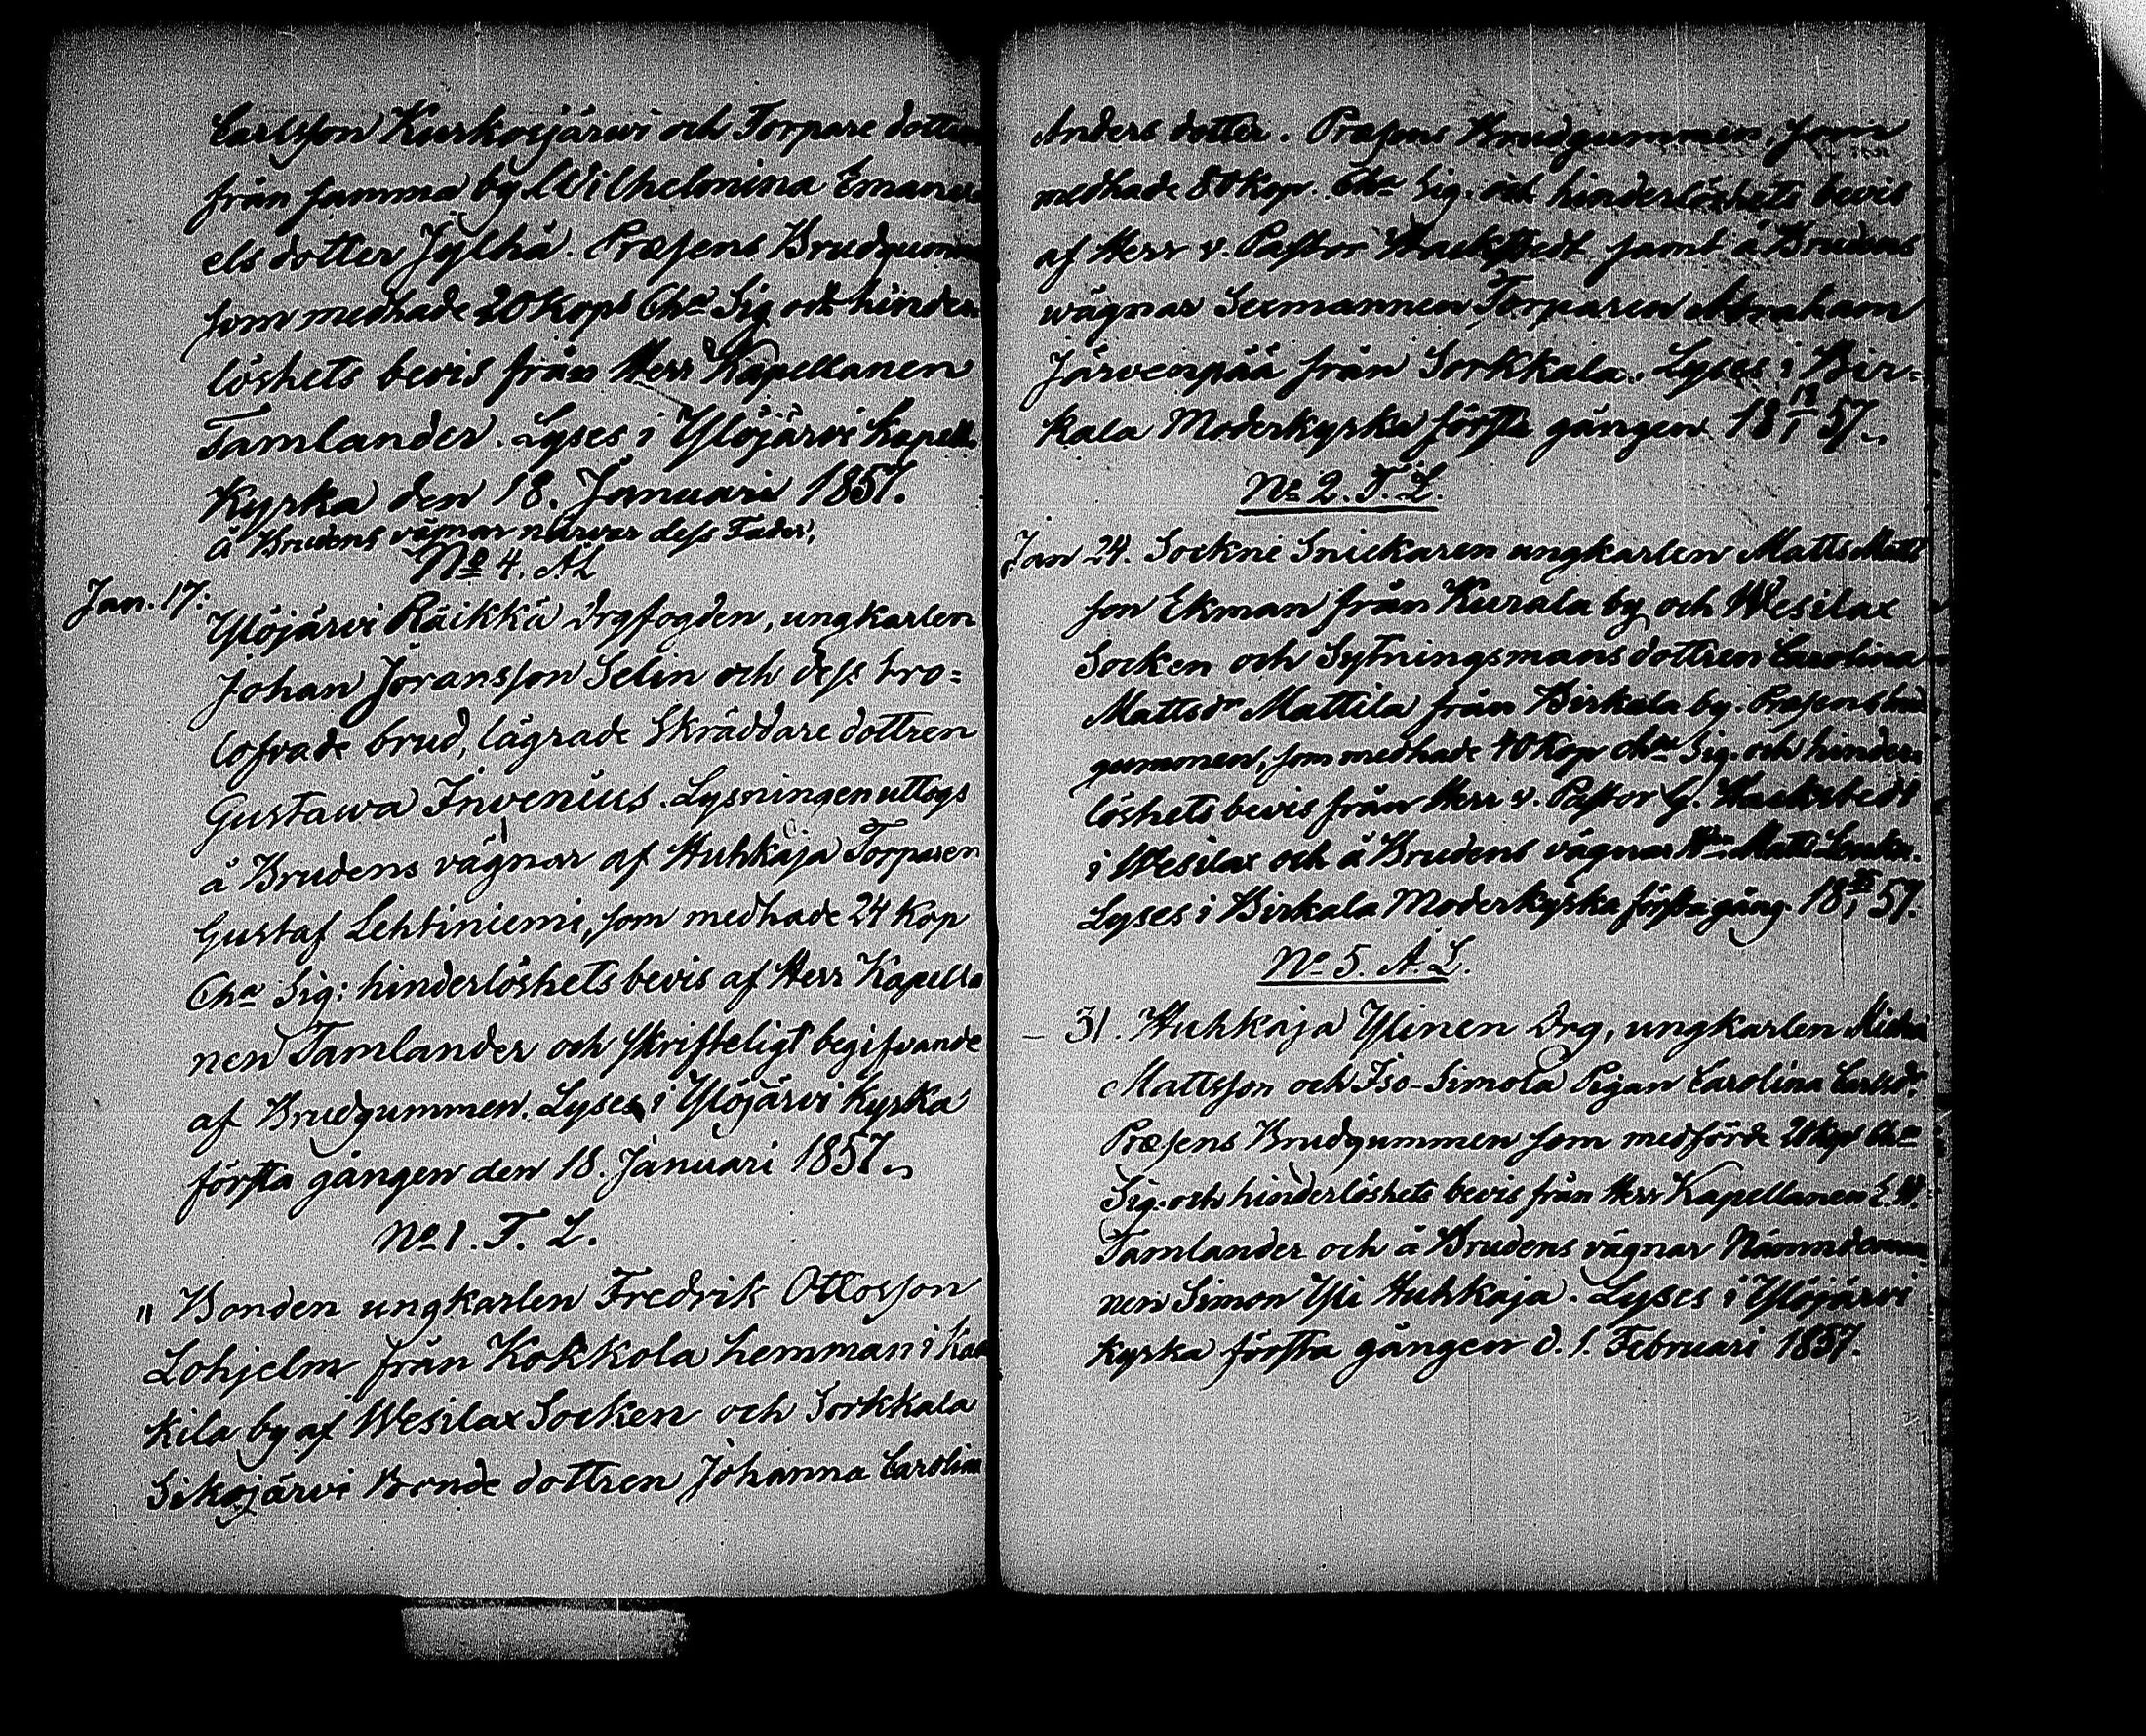 Carlsson Kurkosjärwi och Torpare dottren
från samma by Wilhelmina Emanu
els dotter Jylhä. Præsens Brudgumm
som medhade 20 Kops Cha Sig och hinder
löshets bevis från Herr Kapellanen
Tamlander. Lyses i Ylöjärvi Kapell
Kyrka den 18. Januari 1857.
å Brudens vägnar närvar dess Fader,
No 4. A.L
Jan. 17:
Ylöjärvi Räikkä Drgfogden, ungkarlen
Johan Joransson Selin och dess tro-
lofvade brud, lägrade Skräddare dottren
Gustawa Invenius. Lysningen uttogs
å Brudens vägnar af Huhkaja Torparen
Gustaf Lehtiniemi, som medhade 24 Kop
Cha Sig: hinderlöshets bevis af Herr Kapella
nen Tamlander och skrifteligt begifvande
af Brudgummen. Lyses i Ylöjärvi Kyrka
första gången den 18. Januari 1857.
No 1. F. L.
" Bonden ungkarlen Fredrik Ottosson
Lohjelm från Kokkola hemman i Kaa
kila by af Wesilax Socken och Sorkkala
Sikojärvi Bonde dottren Johanna Carolina
Anders dotter. Præsens Brudgummen, som
medhade 80 Kop. Cha Sig. och hinderlöshets bevis
af Herr v. Pastor Hackstedt samt å Brudens
wägnar Sexmannen Torparen Abraham
Järvenpää från Sorkkala. Lyses i Bir-
kala Moderkyrka första gången 18 18/1 57.
No 2. F. L.
Jan 24. Sockne Snickaren ungkarlen Matts Matts
son Ekman från Kurala by och Wesilax
Socken och Sytningsmans dottren Carolina
Mattsdr Mattila från Birkala by. Præsens brud
gummen, som medhade 40 Kop Cha Sig. och hinder
löshets bevis från Herr v. Pastor G. Hackstedt
i Wesilax och å Brudens vägnar Matts
Lyses i Birkala Moderkyrka första gång 18 25/1 57.
No 5. A. L.
– 31. Huhkaja Ylinen Drg, ungkarlen Michel
Mattsson och Iso-Simola Pigan Carolina Carlsdr.
Præsens Brudgummen som medförde 20 kop Cha
Sig. och hinderlöshets bevis från Herr Kapellanen E. W.
Tamlander och å Brudens vägnar Nämndeman
nen Simon Yli Huhkaja. Lyses i Ylöjärvi
kyrka första gången d. 1. Februari 1857.